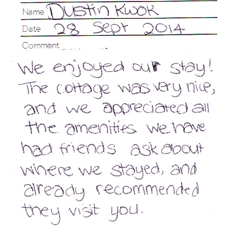 Name Dustin Kwok
Date 28 Sept 2014
Comment
We enjoyed our stay!
The cottage was very nice,
and we appreciated all
the amenities we have
had friends ask about
where we stayed, and
already recommended
they visit you.